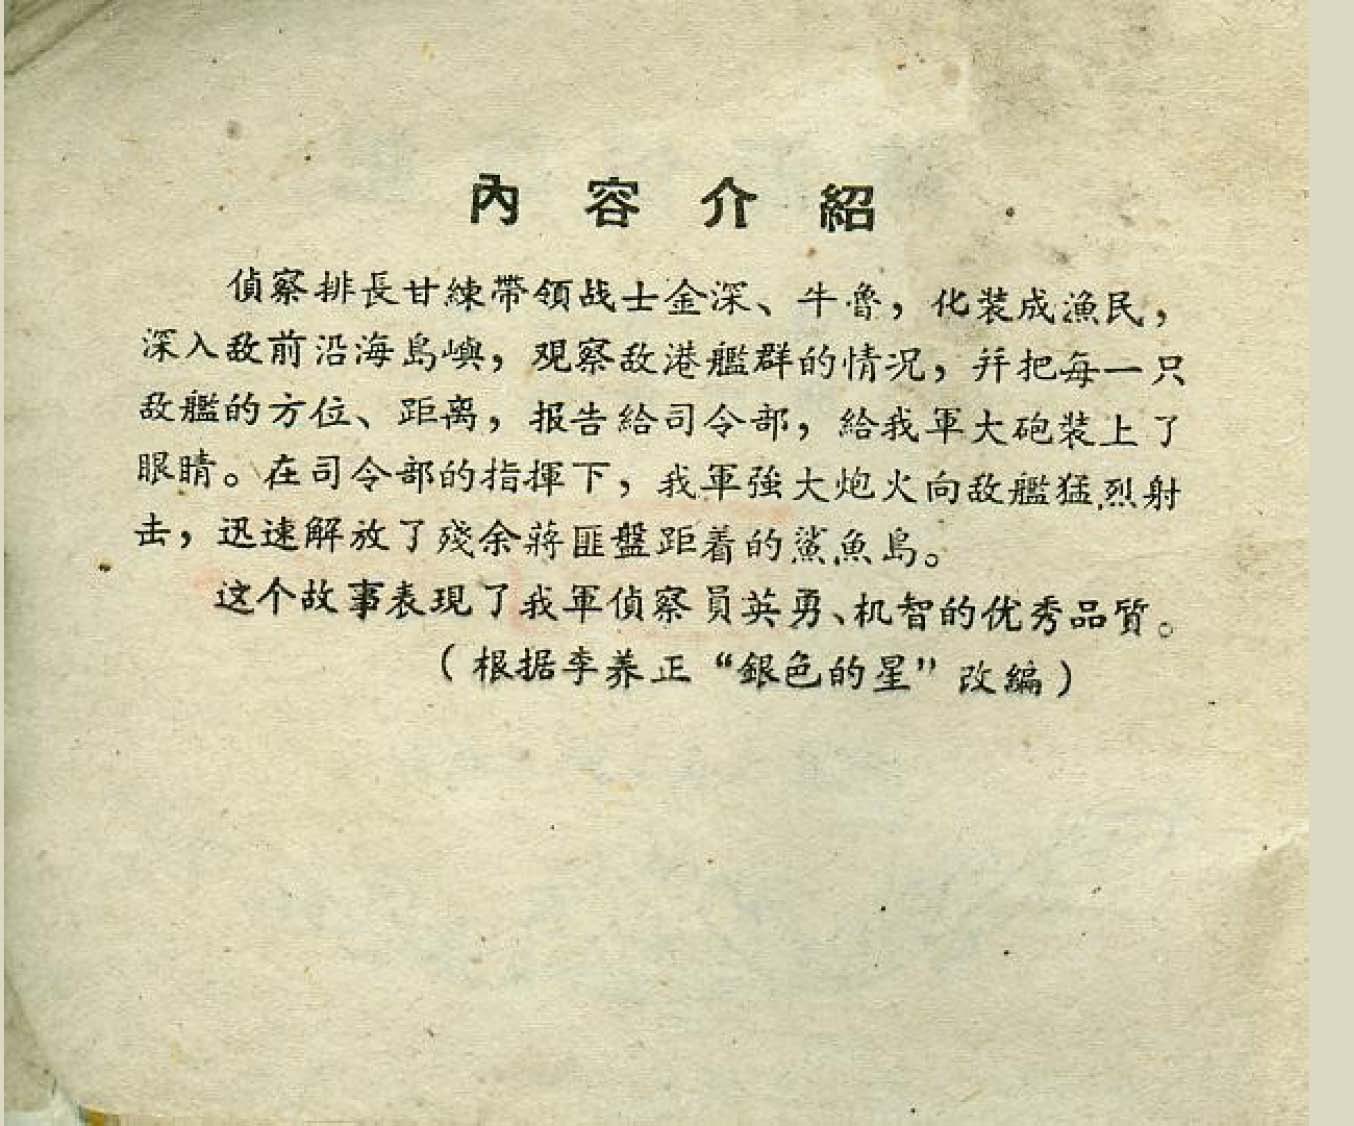 內容介紹
偵察排長甘練帶領战士金深、牛魯，化裝成漁民，
深入敌前沿海島嶼，观察敌港艦群的情况，并把每一只
敌艦的方位、距离，报告給司令部，給我軍大砲裝上了
眼睛。在司令部的指揮下，我軍強大炮火向敌艦猛烈射
击，迅速解放了殘余蔣匪盤距着的鯊魚島。
这个故事表現了我軍偵察員英勇、机智的优秀品質。
（根据李养正“銀色的星”改編）